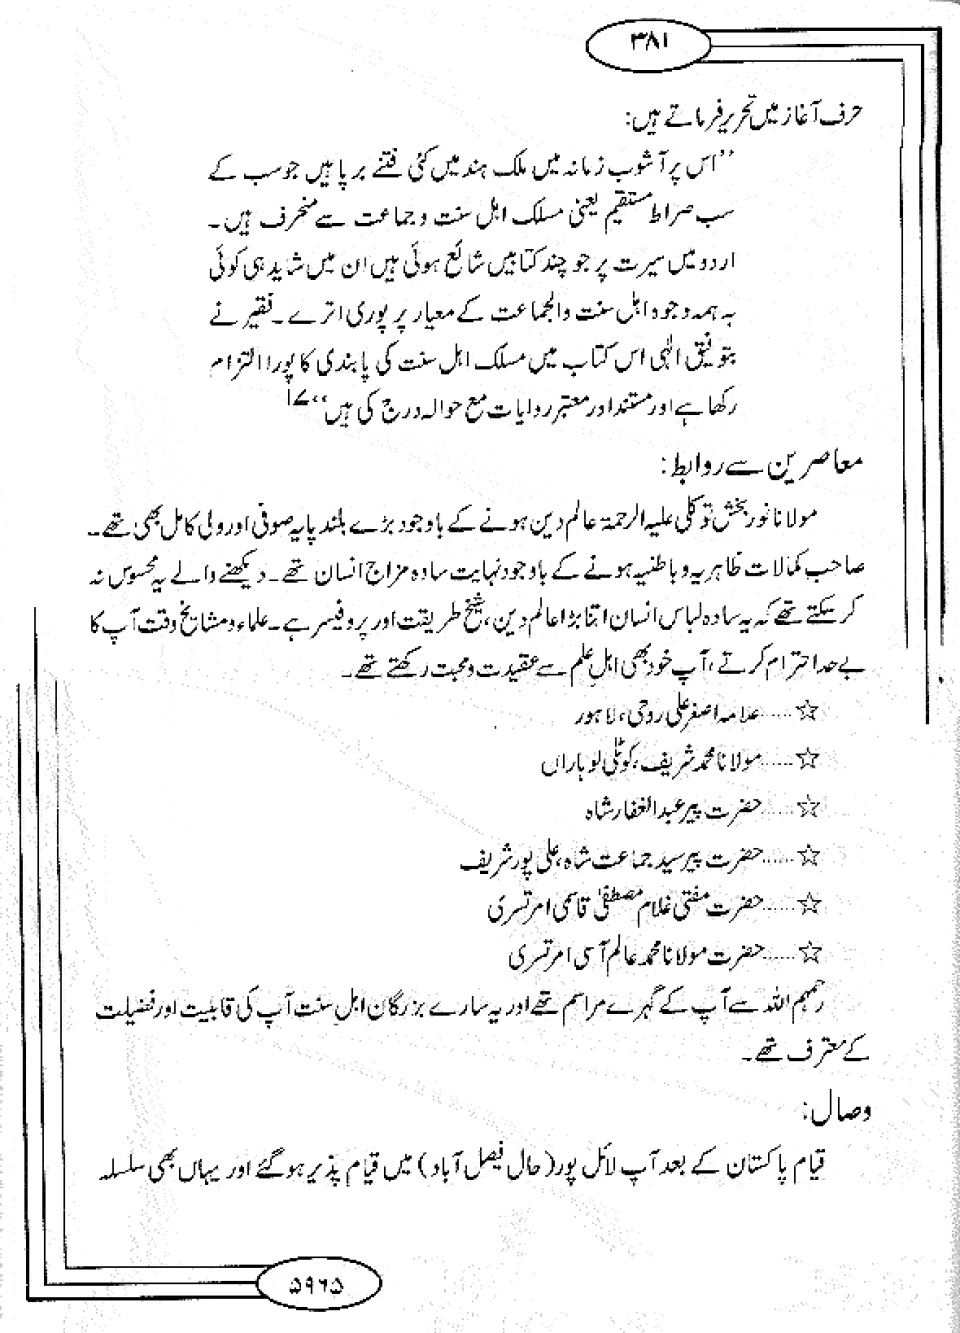 ۳۸۱
حرف آغاز میں تحریر فرماتے ہیں:
’’اس پر آشوب زمانہ میں ملک ہند میں کئی فتنے برپا ہیں جو سب کے
سب صراط مستقیم یعنی مسلک اہل سنت و جماعت سے منحرف ہیں۔
اردو میں سیرت پر جو چند کتابیں شائع ہوئی ہیں ان میں شاید ہی کوئی
بہ ہمہ وجوہ اہل سنت والجماعت کے معیار پر پوری اترے۔ فقیر نے
بتوفیق الٰہی اس کتاب میں مسلک اہل سنت کی پابندی کا پورا التزام
رکھا ہے اور مستند اور معتبر روایات مع حوالہ درج کی ہیں‘‘ ۱۷
معاصرین سے روابط:
مولانا نور بخش توکلی علیہ الرحمۃ عالم دین ہونے کے باوجود بڑے بلند پایہ صوفی اور ولی کامل بھی تھے۔
صاحب کمالات ظاہریہ و باطنیہ ہونے کے باوجود نہایت سادہ مزاج انسان تھے۔ دیکھنے والے یہ محسوس نہ
کر سکتے تھے کہ یہ سادہ لباس انسان اتنا بڑا عالم دین، شیخ طریقت اور پروفیسر ہے۔ علماء و مشایخ وقت آپ کا
بے حد احترام کرتے، آپ خود بھی اہلِ علم سے عقیدت و محبت رکھتے تھے۔
☆......علامہ اصغر علی روحی، لاہور
☆......مولانا محمد شریف، کوٹلی لوہاراں
☆......حضرت پیر عبدالغفار شاہ
☆......حضرت پیر سید جماعت شاہ، علی پور شریف
☆......حضرت مفتی غلام مصطفیٰ قاسمی امرتسری
☆......حضرت مولانا محمد عالم آسی امرتسری
رحمہم اللہ سے آپ کے گہرے مراسم تھے اور یہ سارے بزرگان اہلِ سنت آپ کی قابلیت اور فضیلت
کے معترف تھے۔
وصال:
قیام پاکستان کے بعد آپ لائل پور (حال فیصل آباد) میں قیام پذیر ہو گئے اور یہاں بھی سلسلہ
۵۹۶۵